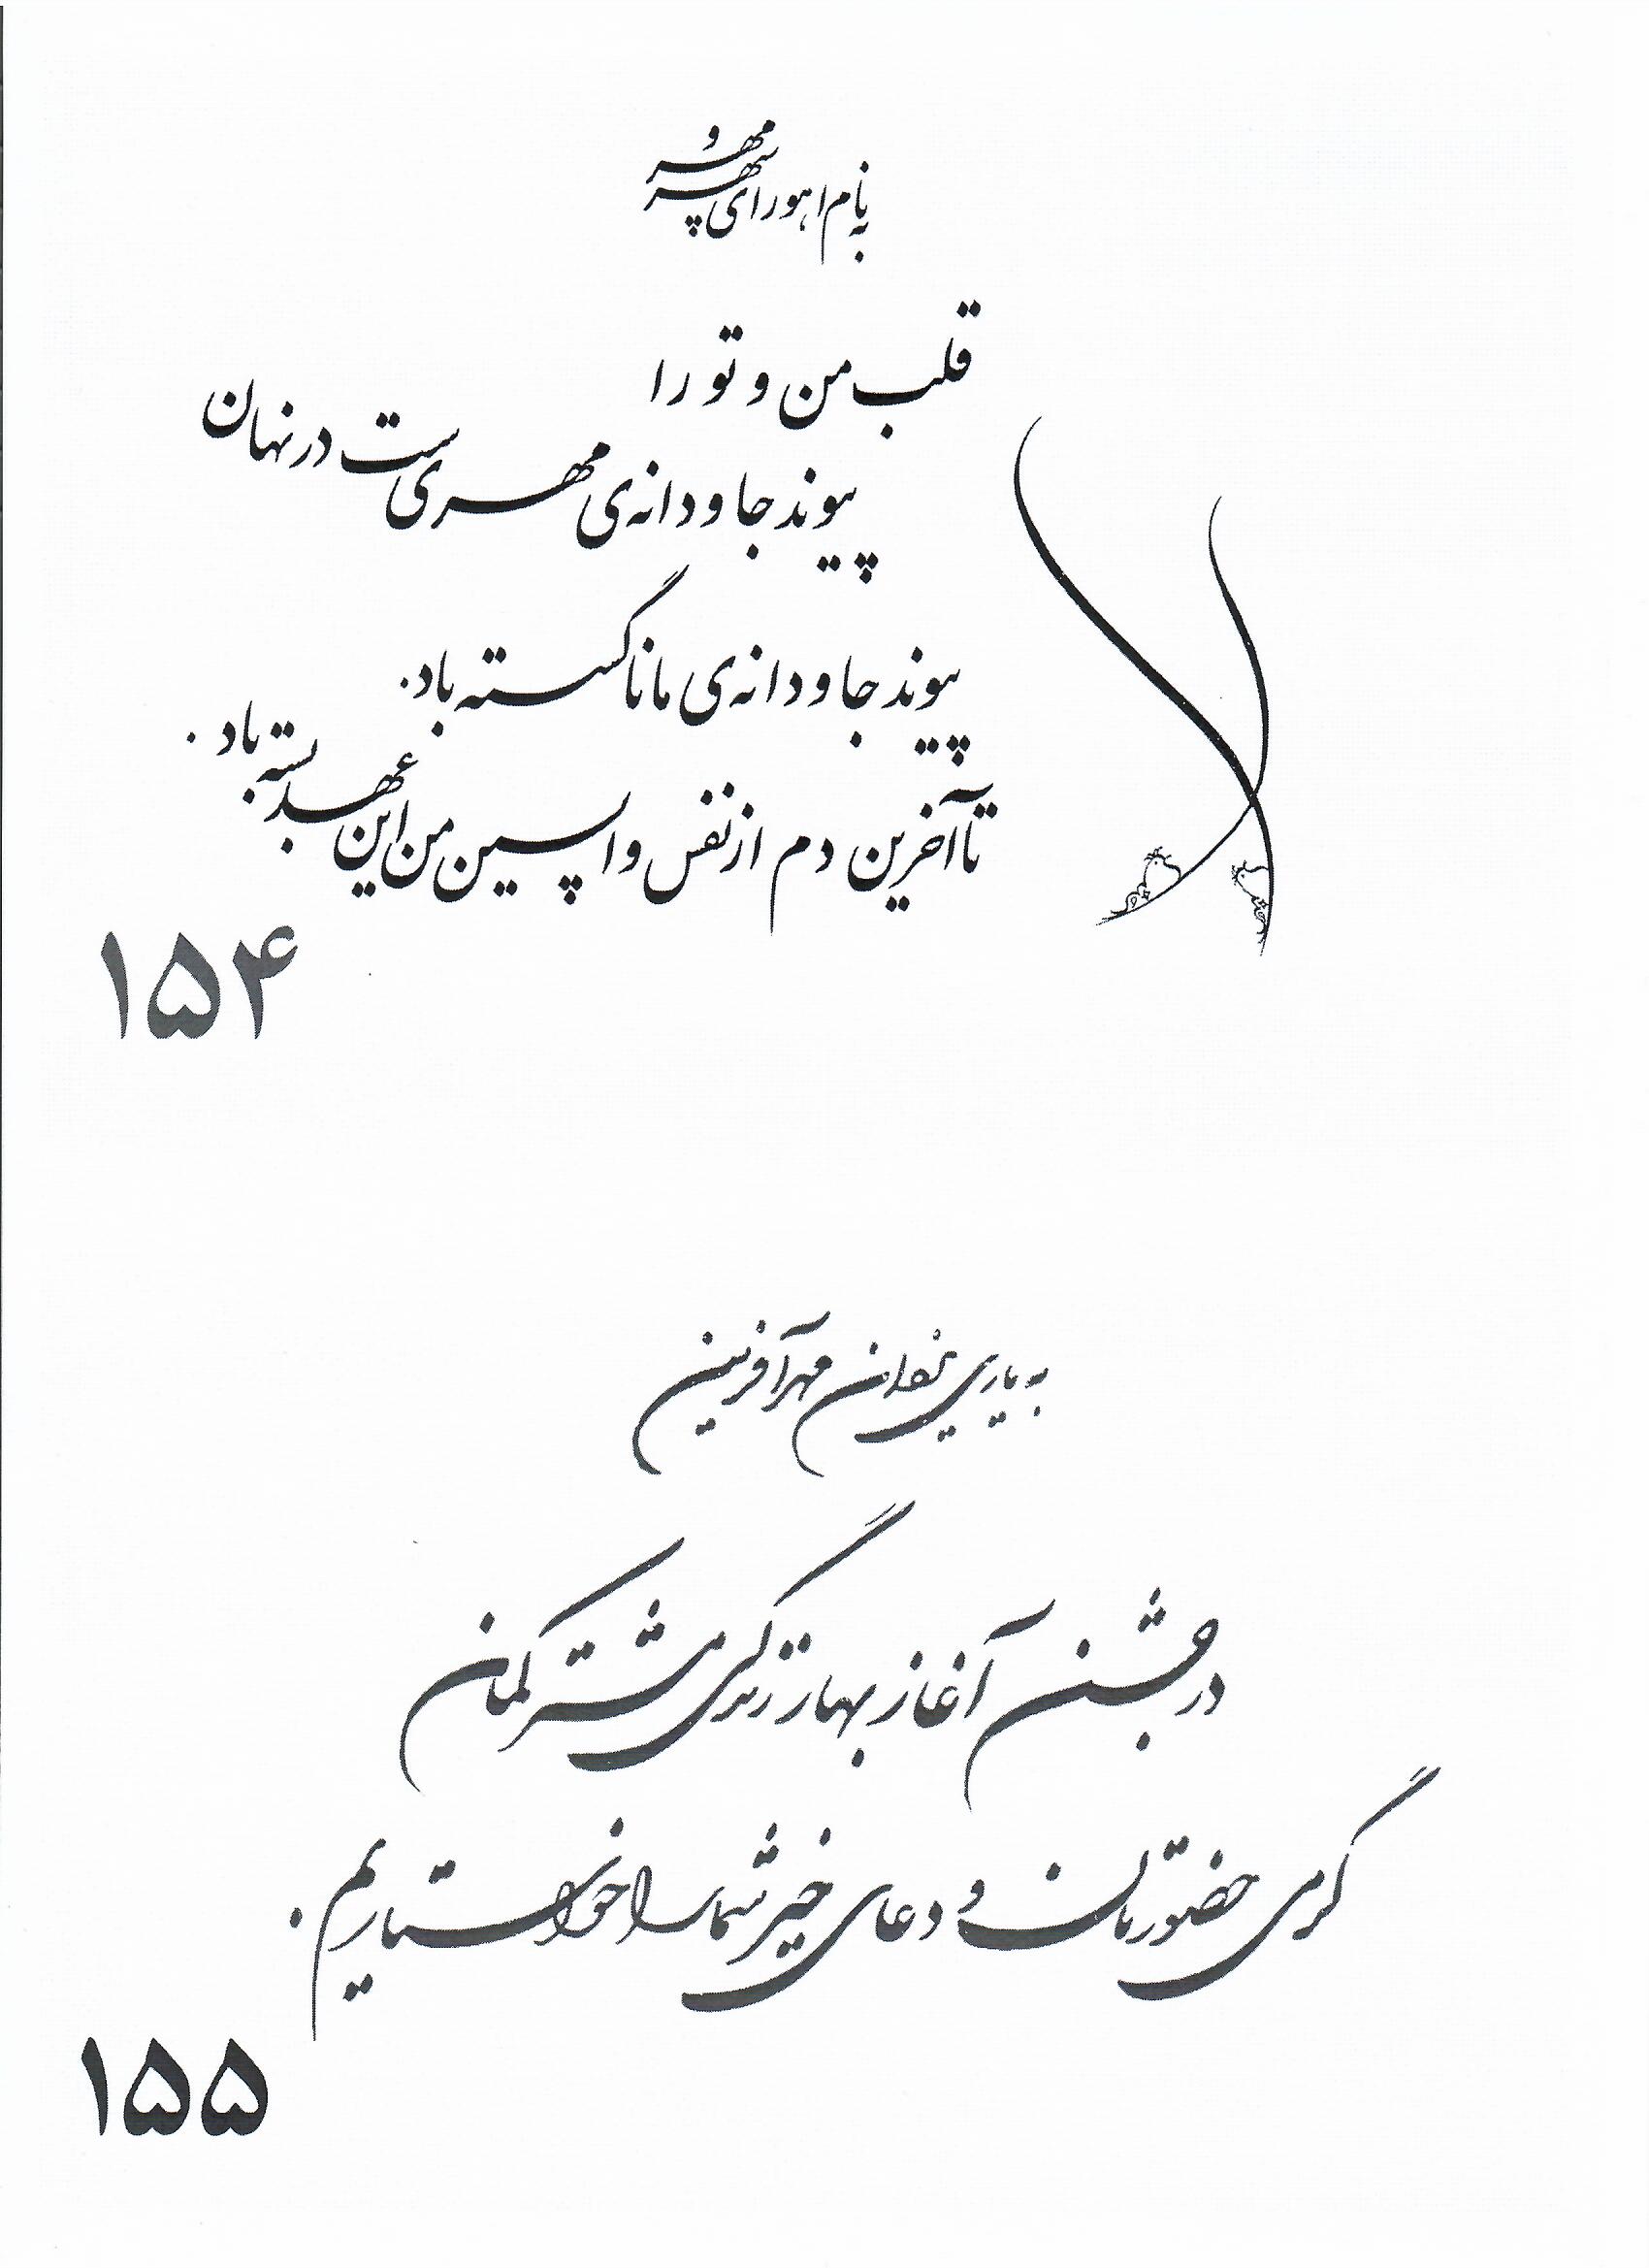 به نام اهورای مهر و سپهر
قلب من و تو را
پیوند جاودانه‌ی مهری‌ست در نهان
پیوند جاودانه‌ی ما ناگسسته باد.
تا آخرین دم از نفس واپسین من این عهد بسته باد.
۱۵۴
به یاری یزدان مهرآفرین
در جشن آغاز بهار زندگی مشترکمان
گرمی حضورتان و دعای خیر شما را خواستاریم.
۱۵۵